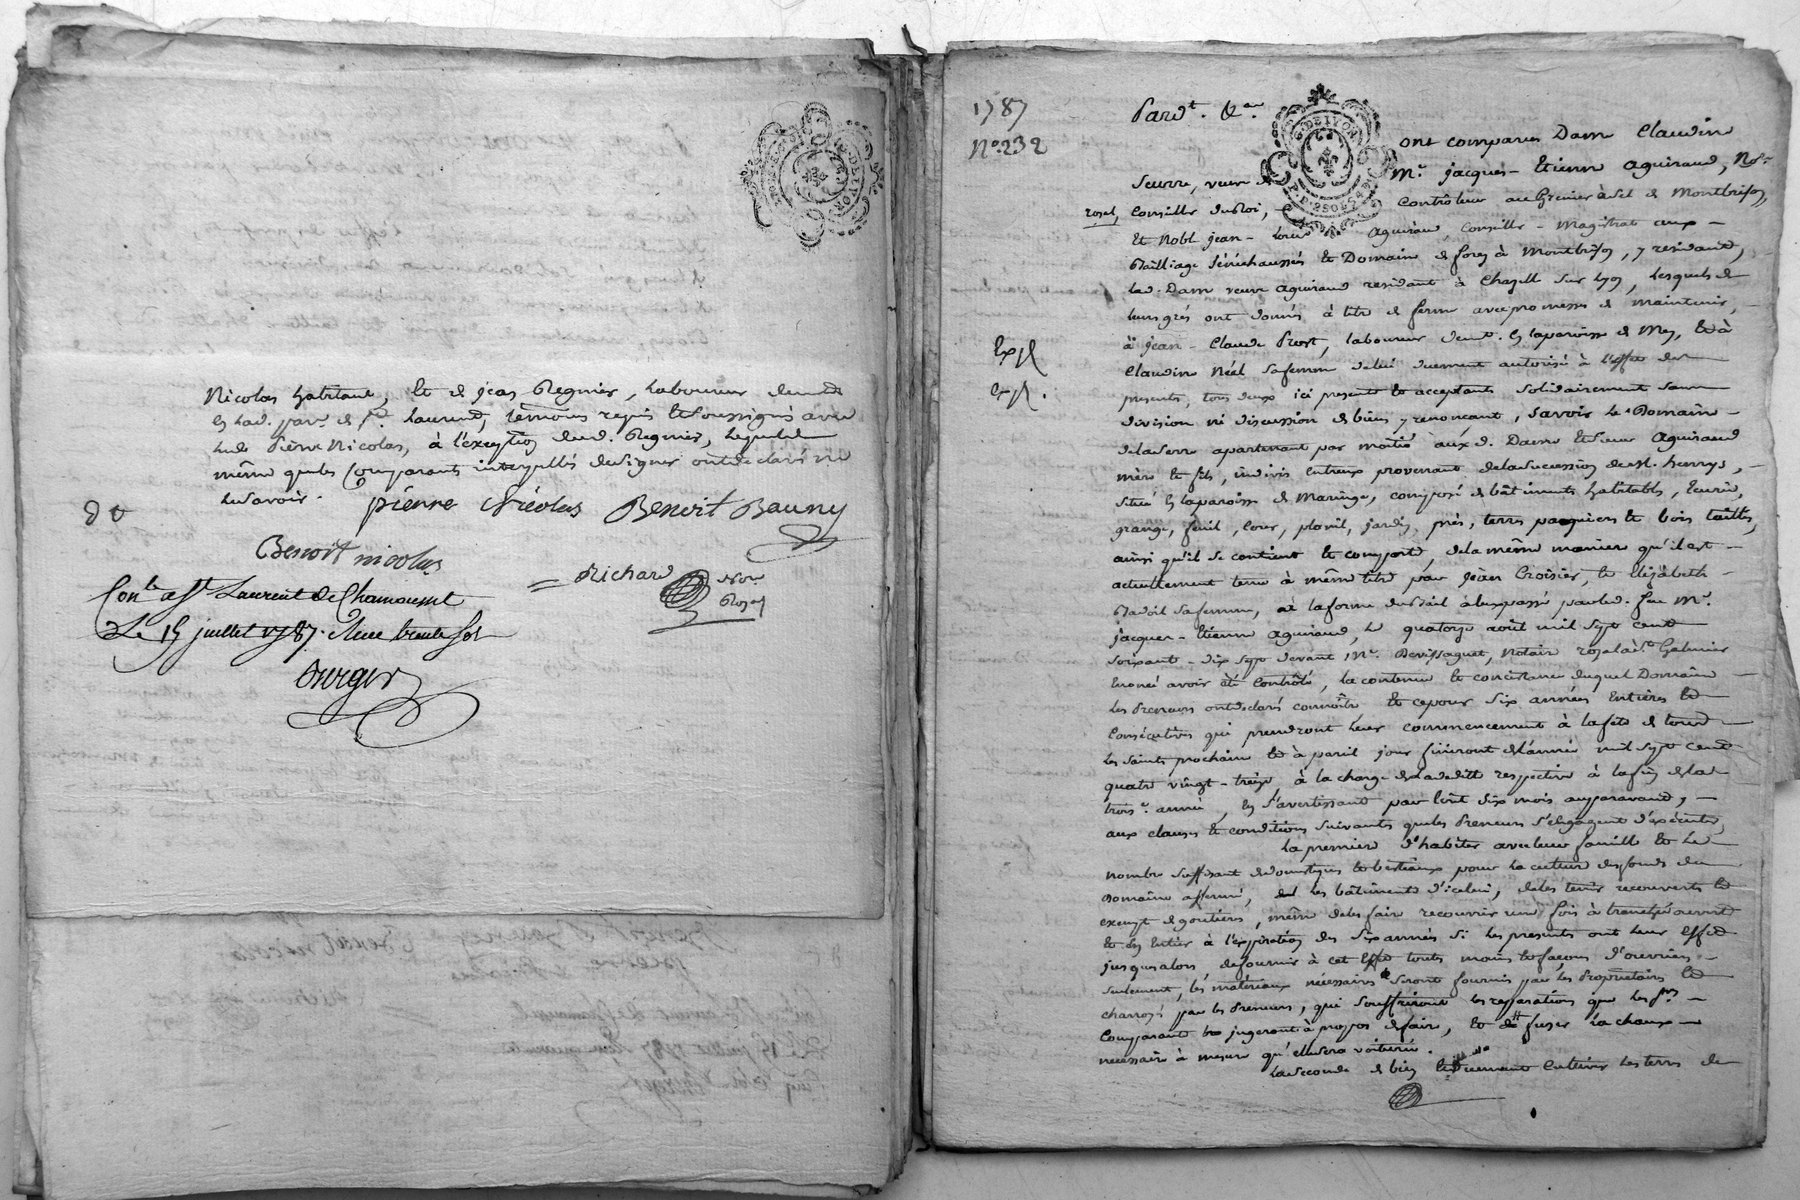 Nicolas habitant, et de jean Regnier, laboureur demt
en lad. parr. de St. Laurent, témoins requis et soussignés avec
led. Pierre Nicolas, à l'exception dud. Regnier, lequel de
même que les Comparants interpellés de signer ont déclaré ne
le savoir.
pierre Nicolas Benoit Bauny
Benoit nicolas
Richard Nore Royal
Conlé a St Laurent de Chamousset
Le 15 juillet 1787. Reçu trente sols
Burger
1787
No. 232
Pardt. &a.
G. DE LYON
ont comparu Dame Claudine
Seurre, veuve de Mr. jacques-Etienne aguiraud, Nore
royal, Conseiller du Roi, Contrôleur au Grenier à Sel de Montbrison,
Et Noble jean-Louis aguiraud, Conseiller-Magistrat aux
Bailliage Sénéchaussée et Domaine de forez à Montbrison, y residant,
lad. Dame veuve aguiraud residant à Chazelle sur Lyon, lesquels de
leurs grés ont donné à titre de ferme avec promesse de maintenir,
à jean-Claude Prost, laboureur demt. en la paroisse de Mey, et à
Expé
Claudine Néel sa femme de lui duement autorisée à l'effet des
expé.
presentes, tous deux ici presents et acceptants solidairement sans
division ni discussion de biens y renonçant, Savoir le Domaine
de laserre apartenant par moitié aux d. Dame et Sieur Aguiraud
mère et fils, indivis entreux provenant de la succession de M. henrys,
situé en la paroisse de Maringe, composé de bâtiments habitables, Ecurie,
grange, fenil, Cour, jardin, prés, terres paquiers et bois taillis,
ainsi qu'il se contient et comporte, de la même maniere qu'il est
actuellement tenu à même titre par jean Croisier, et Elizabeth
sa femme, à la forme du bail à eux passé par led. feu Mr.
jacques-Etienne aguiraud, le quatorze août mil sept cent
soixante-dix sept devant Me. Devissaguet, Notaire royal à St. Galmier
Enoncé avoir été Contrôlé, la contenue et concistance duquel Domaine
les Preneurs ont declaré connoître et ce pour six années Entières et
Consécutives qui prendront leur commencement à la fête de tous
les saints prochaine et à pareil jour finiront de l'année mil sept cent
quatre vingt-treize à la charge de la dedite respective à la fin de la
trois.e année, en s'avertissant par écrit six mois auparavant,
aux clauses et conditions suivantes que les Preneurs s'engagent d'exécuter
la premiere d'habiter avec leur famille et le
nombre suffisant de domestiques et bestiaux pour la culture des fonds du
Domaine affermé, les bâtiments d'icelui, de les tenir recouverts et
exempt de goutieres, même de les faire recouvrir une fois à tranche ouverte
et en Entier à l'expiration des six années si les presentes ont leur effet
jusqu'alors, de fournir à cet effet toutes mains et façons d'ouvriers
seulement, les matériaux nécessaires seront fournis par les Propriétaires et
charroyés par les Preneurs, qui souffriront les reparations que les srs
Comparants jugeront à propos de faire, et de fuser la chaux
necessaire à mesure qu'elle sera voiturée.
La Seconde de bien et duement Cultiver les terres de